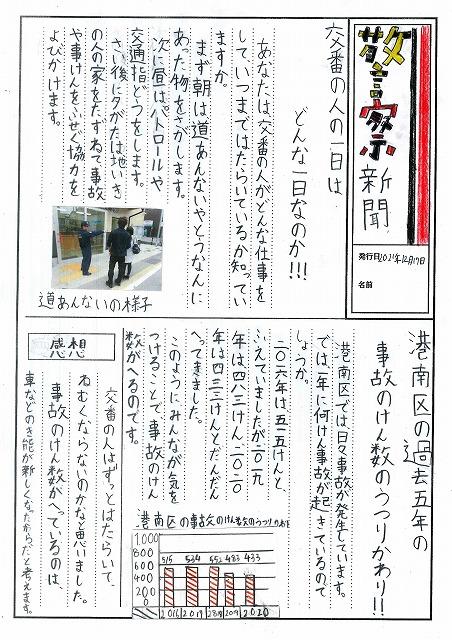 警察新聞
発行日2021年12月17日
名前
交番の人の一日は
どんな一日なのか!!!
あなたは交番の人がどんな仕事を
して、いつまではたらいているか知ってい
ますか。
まず朝は道あんないやとうなんに
あった物をさがします。
次に昼はパトロールや
交通指どうをします。
さい後に夕がたは地いき
の人の家をたずねて事故
や事けんをふせぐ協力を
よびかけます。
道あんないの様子
港南区の過去五年の
事故のけん数のうつりかわり!!
港南区では日々事故が発生しています。
では一年に何けん事故が起きているので
しょうか。
二〇一六年は五一五けんと、
ふえていましたが二〇一九
年は四八三けん、二〇二〇
年は四三三けんとだんだん
へってきました。
このようにみんなが気を
つけることで、事故のけん
数がへるのです。
港南区の事故のけん数のうつりかわり
1,000
800
600
400
200
0
515
534
552
483
433
2016
2017
2018
2019
2020
感想
交番の人はずっとはたらいて、
ねむくならないのかなと思いました。
事故のけん数がへっているのは、
車などのき能が新しくなったからだと考えます。